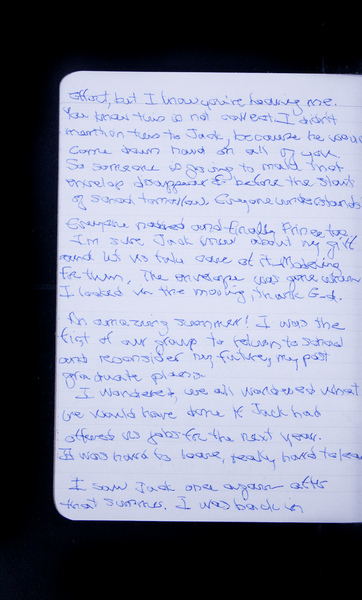 effort, but I know you're hearing me.
You know this is not correct. I didn't
mention this to Jack, because he would
come down hard on all of you.
So someone is going to make that
envelop disappear before the start
of school tomorrow. Everyone understands
Everyone nodded and finally Prince too.
I'm sure Jack knew about my gift
and let us take care of it.
For them, The envelope was gone when
I looked in the morning, thank God.
An amazing summer! I was the
first of our group to return to school
and reconsider my future, my post
graduate plans.
I wondered, we all wondered what
we would have done if Jack had
offered us jobs for the next year.
It was hard to leave, really hard to leave
I saw Jack once again after
that summer. I was back in